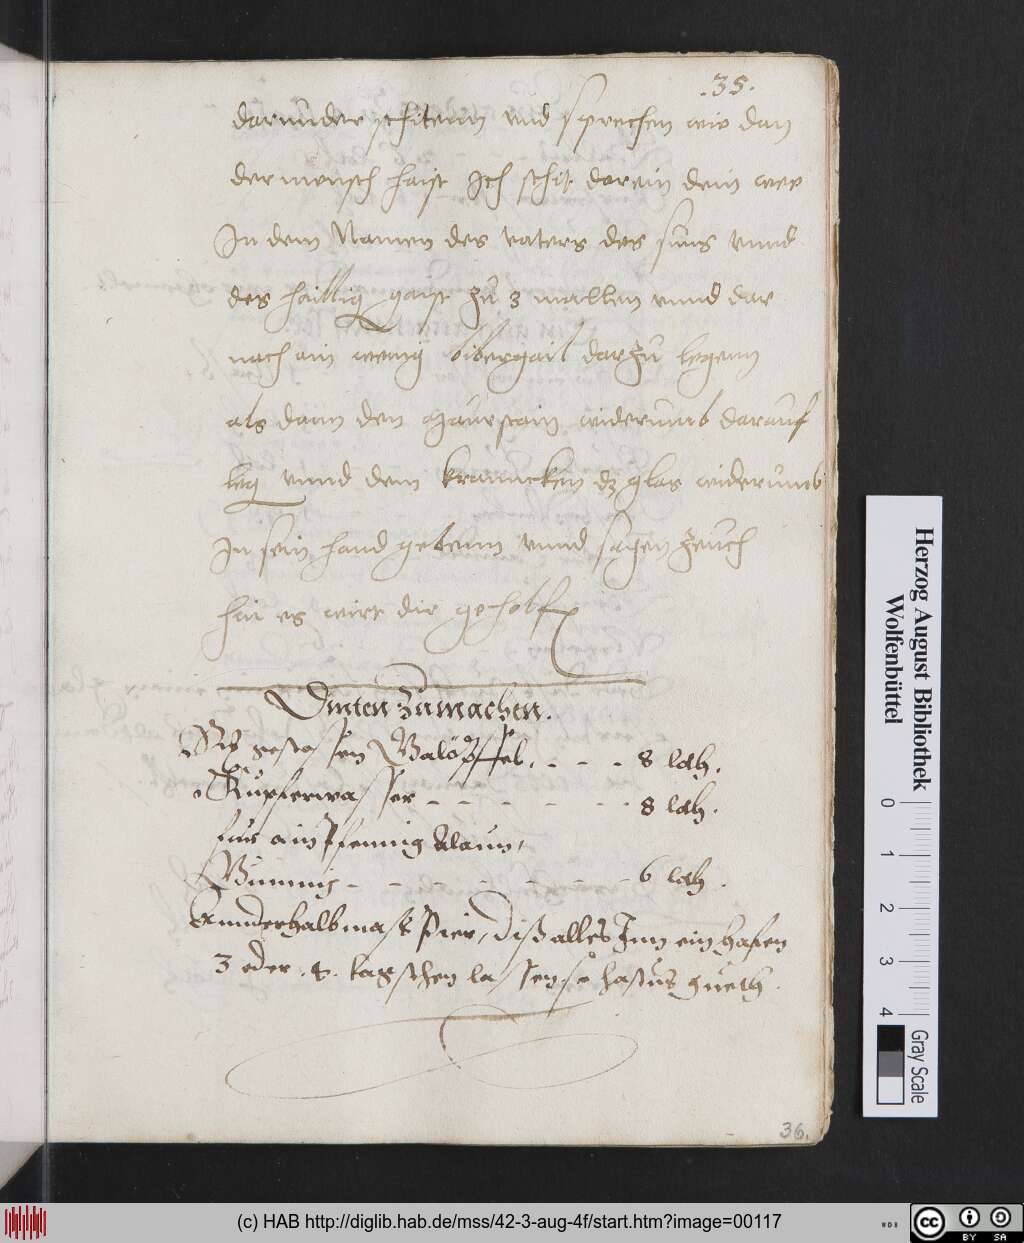 .35.
darunder schitenn vnd sprechen wie dan
der mensch haist Ich schit darein dein wee
In dem Namen des vaters des suns vnnd
des haillig gaist zu 3 mallen vnnd dar
nach ain wenig bibergail darzu legenn
als dann den maurstain widerumb darauf
leg vnnd dem kranncken dz glas widerumb
In sein hand gebenn vnnd sagen zeuch
hin es wirt dir geholfen
Dinten zumachen.
Rip gestossen Galöpffel. - - - 8 loth.
Kupferwasser - - - - - - 8 loth.
fur ain Pfennig Alaun,
Gummi - - - - - - - 6 loth.
Annderhalb mass Pier, diss alles Inn ein hafen
3 oder .4. tag sehen lassen so hastus gueth.
36.
Herzog August Bibliothek
Wolfenbüttel
0 1 2 3 4
Gray Scale
(c) HAB http://diglib.hab.de/mss/42-3-aug-4f/start.htm?image=00117
cc BY SA